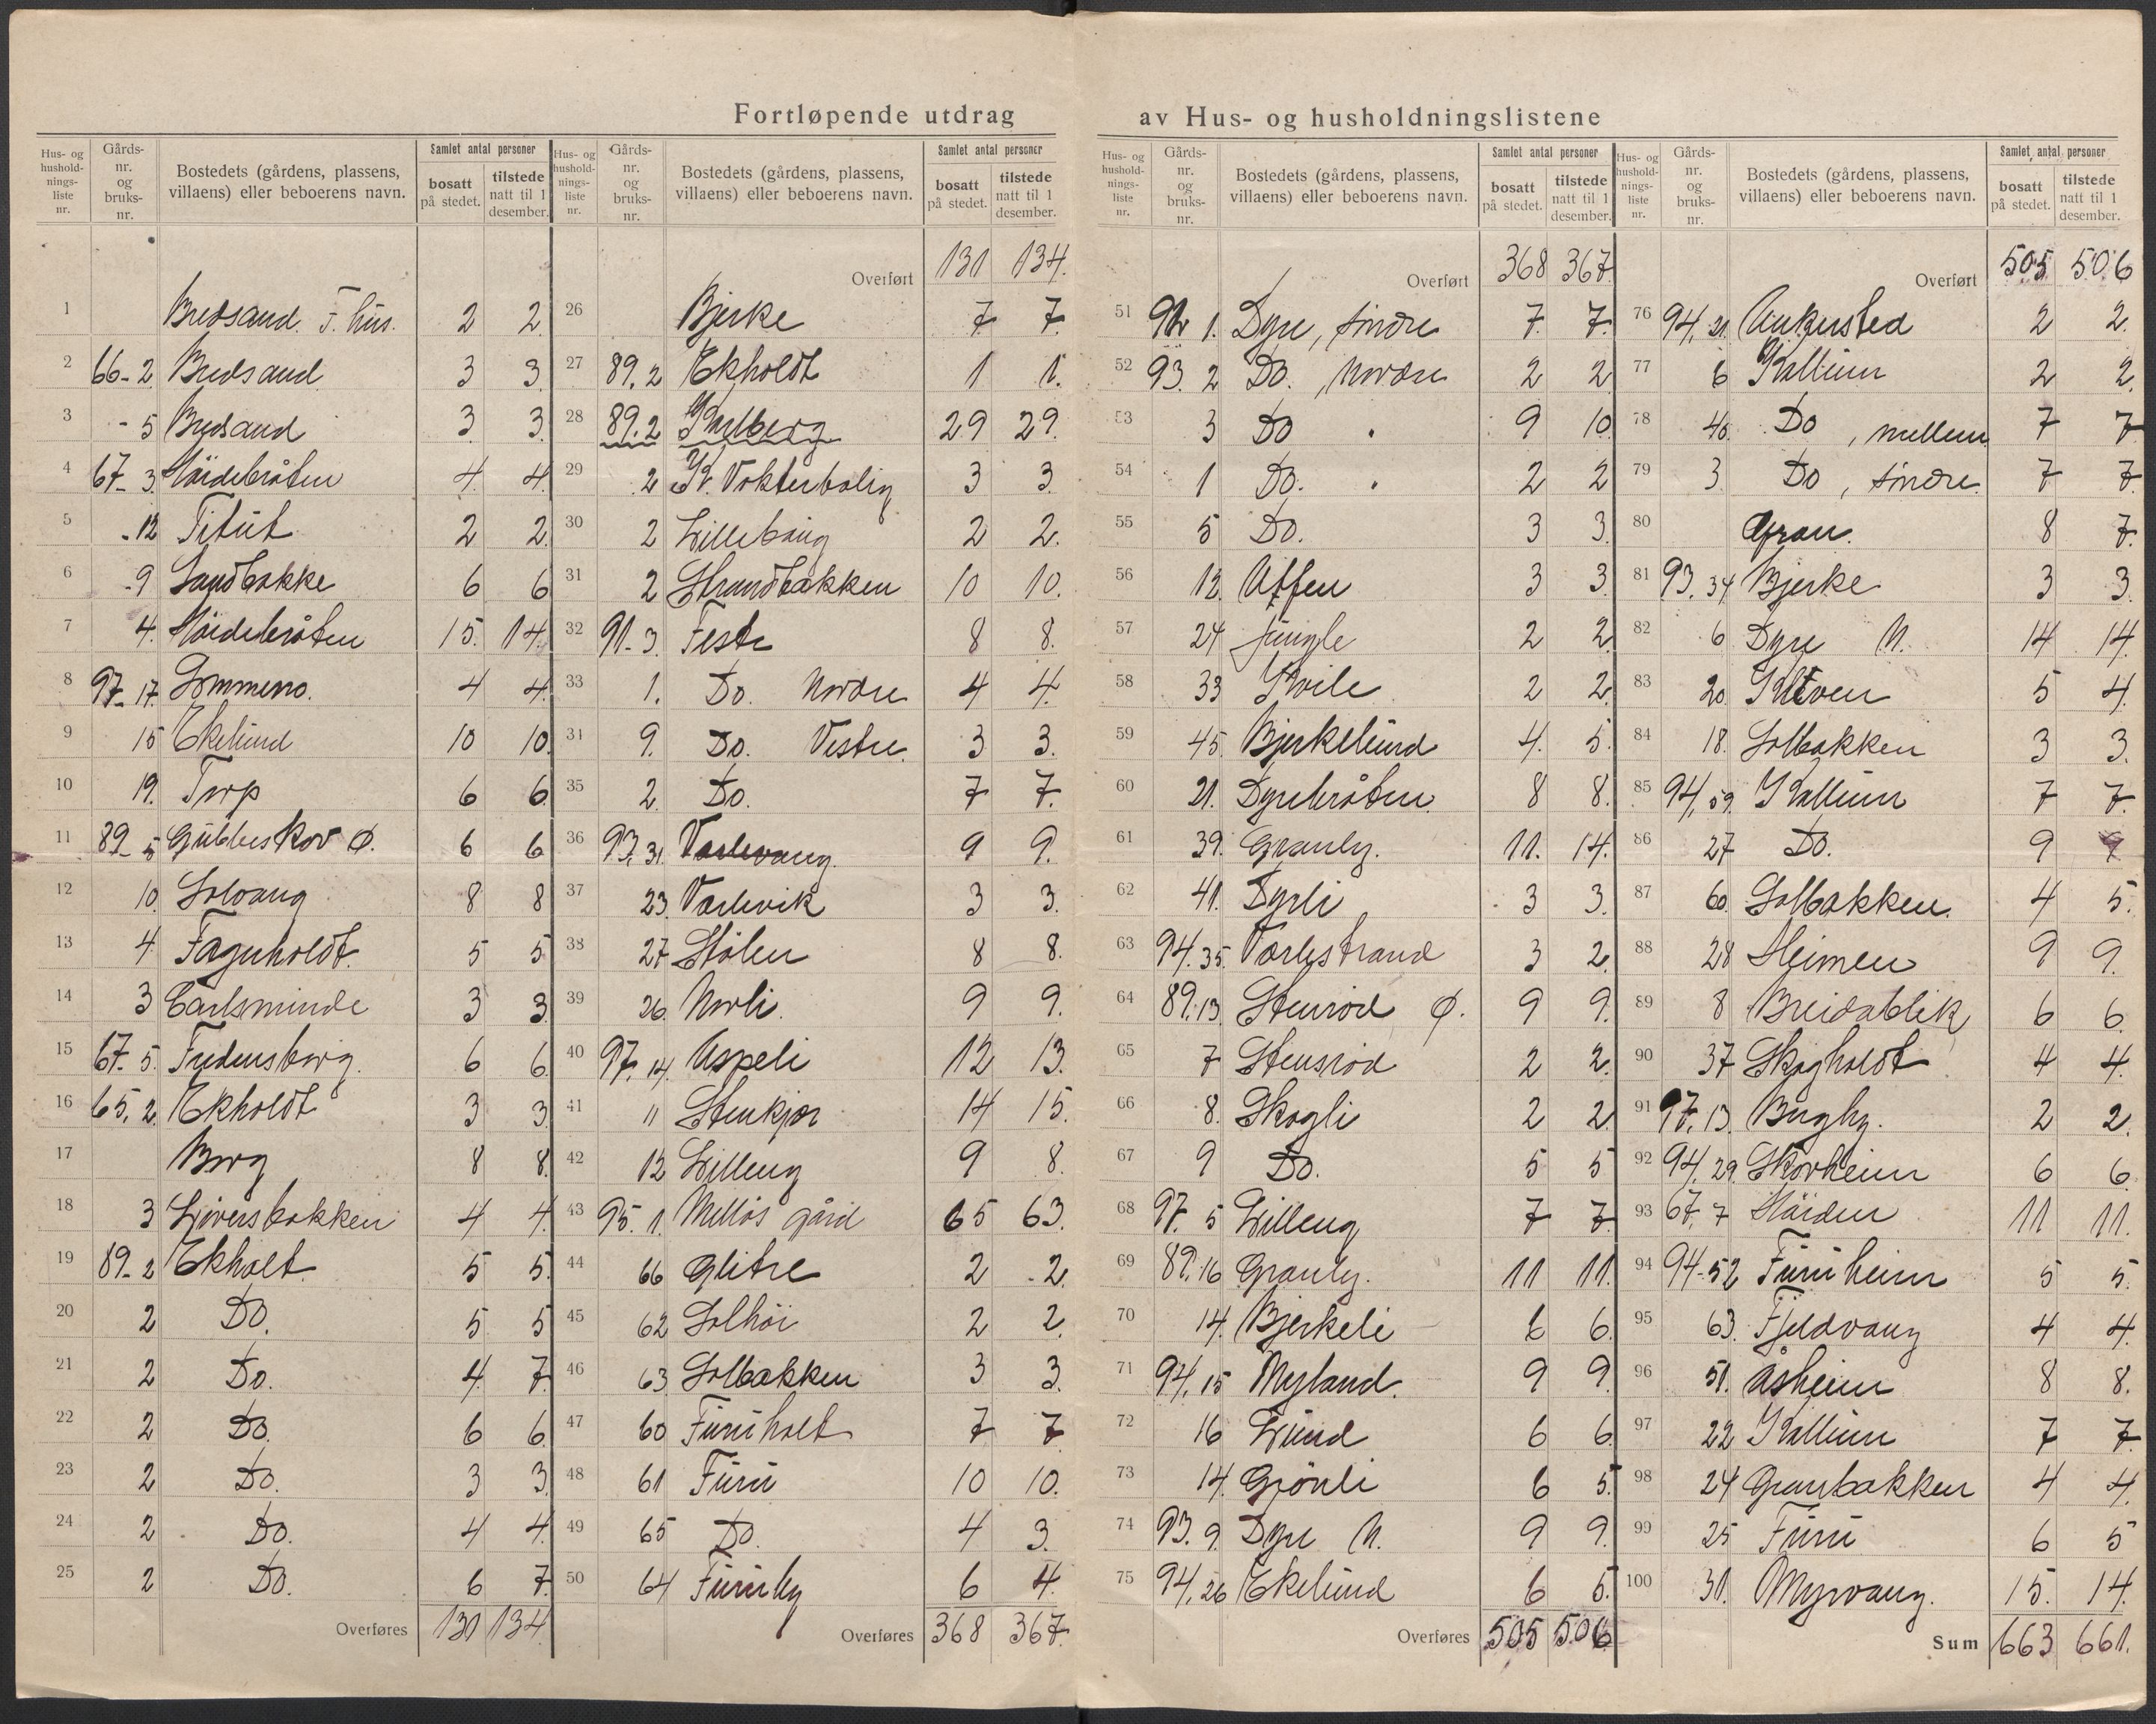 Fortløpende utdrag av Hus- og husholdningslistene
Hus- og hushold-nings-liste nr. | Gårds-nr. og bruks-nr. | Bostedets (gårdens, plassens, villaens) eller beboerens navn. | Samlet antal personer | bosatt på stedet. | tilstede natt til 1 desember.
1 Bredsand F. hus. 2 2
2 66-2 Bredsand 3 3
3 -5 Bredsand 3 3
4 67-3 Höidebråten 4 4
5 -12 Titut 2 2
6 -9 Sandbakke 6 6
7 4 Höidebråten 15 14
8 97-17 Lommero 4 4
9 15 Ekelund 10 10
10 19 Torp 6 6
11 89-5 Gubbeskov Ø. 6 6
12 10 Solvang 8 8
13 4 Fagerholdt 5 5
14 3 Carlsminde 3 3
15 67-5 Fredensborg 6 6
16 65,2 Ekholdt 3 3
17 Borg 8 8
18 3 Sjöversbakken 4 4
19 89-2 Ekholt 5 5
20 2 Do. 5 5
21 2 Do. 4 7
22 2 Do. 6 6
23 2 Do. 3 3
24 2 Do. 4 4
25 2 Do. 6 7
Overføres 130 134
Hus- og hushold-nings-liste nr. | Gårds-nr. og bruks-nr. | Bostedets (gårdens, plassens, villaens) eller beboerens navn. | Samlet antal personer | bosatt på stedet. | tilstede natt til 1 desember.
Overført 131 134
26 Bjerke 7 7
27 89,2 Ekholdt 1 1
28 89.2 Karlberg 29 29
29 2 K. Vokterbolig 3 3
30 2 Lillebaug 2 2
31 2 Strandbakken 10 10
32 91-3 Feste 8 8
33 1. Do. Nordre 4 4
34 9. Do. Vestre. 3 3
35 2. Do. 7 7
36 93,31 Varlevang 9 9
37 23 Varlevik 3 3
38 27 Stölen 8 8
39 26 Norli 9 9
40 97,14 Aspeli 12 13
41 11 Stenkjær 14 15
42 12 Lilleng 9 8
43 95.1. Mellös gård 65 63
44 66 Glitre 2 2
45 62 Solhöi 2 2
46 63 Solbakken 3 3
47 60 Furuholt 7 7
48 61 Furu 10 10
49 65 Do. 4 3
50 64 Furuly 6 4
Overføres 368 367
Hus- og hushold-nings-liste nr. | Gårds-nr. og bruks-nr. | Bostedets (gårdens, plassens, villaens) eller beboerens navn. | Samlet antal personer | bosatt på stedet. | tilstede natt til 1 desember.
Overført 368 367
51 92 1. Dyre, söndre 7 7
52 93. 2 Do. , Nordre 2 2
53 3 Do . 9 10
54 1 Do. . 2 2
55 5 Do. 3 3
56 12 3 3
57 24 Jungle 2 2
58 33 Hvile 2 2
59 45 Bjerkelund 4 5
60 21. Dyrebråten 8 8
61 39. Granly. 11 14
62 41. Dyrli 3 3
63 94.35 Varlestrand 3 2
64 89.13 Stensröd Ø. 9 9
65 7 Stensröd 2 2
66 8. Skogli 2 2
67 9 Do. 5 5
68 97. 5 Lilleng 7 7
69 89.16 Granly. 11 11
70 14. Bjerkeli 6 6
71 94,15 Myland 9 9
72 16 Lund 6 6
73 14. Grönli 6 5
74 93.9. Dyre N. 9 9
75 94,26 Ekelund 6 5
Overføres 505 506
Hus- og hushold-nings-liste nr. | Gårds-nr. og bruks-nr. | Bostedets (gårdens, plassens, villaens) eller beboerens navn. | Samlet antal personer | bosatt på stedet. | tilstede natt til 1 desember.
Overført 505 506
76 94,21. Ankersted 2 2
77 6 Kallum 2 2
78 40 Do , mellem 7 7
79 3 Do , söndre 7 7
80 Gran. 8 7
81 93.34 Bjerke 3 3
82 6 Dyre N. 14 14
83 20 Kleven 5 4
84 18. Solbakken 3 3
85 94,59 Kallum 7 7
86 27 Do. 9 9
87 60 Solbakken 4 5
88 28 Heimen 9 9
89 8 Breidablik 6 6
90 37 Skogholdt 4 4
91 97,13. Bugby. 2 2
92 94,29 Skovheim 6 6
93 67,7 Höiden 11 11
94 94-52 Furuheim 5 5
95 63. Fjeldvang 4 4
96 51. Åsheim 8 8
97 22 Kallum 7 7
98 24 Granbakken 4 4
99 25 Furu 6 5
100 31. Myrvang. 15 14
Sum 663 661.